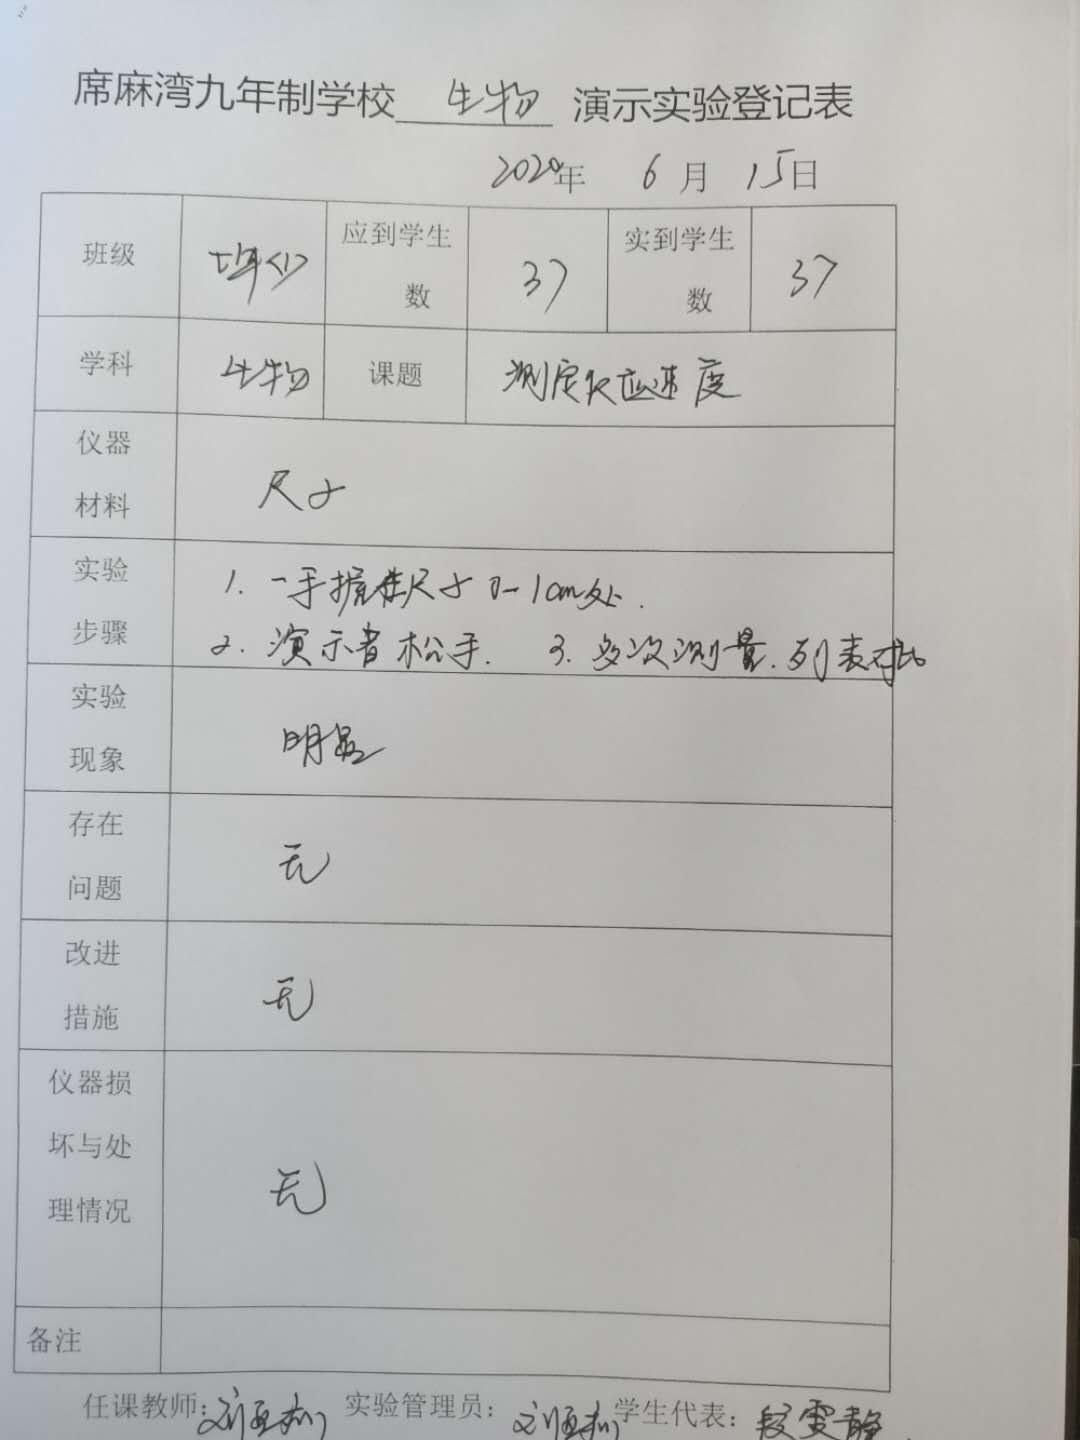 席麻湾九年制学校 生物 演示实验登记表
2020年 6月 15日
班级 七年<1> 应到学生数 37 实到学生数 37
学科 生物 课题 测定反应速度
仪器材料 尺子
实验步骤 1. 一手握住尺子0-1cm处.
2. 演示者松手. 3. 多次测量.列表对比
实验现象 明显
存在问题 无
改进措施 无
仪器损坏与处理情况 无
备注
任课教师: 实验管理员: 学生代表: 段雯静